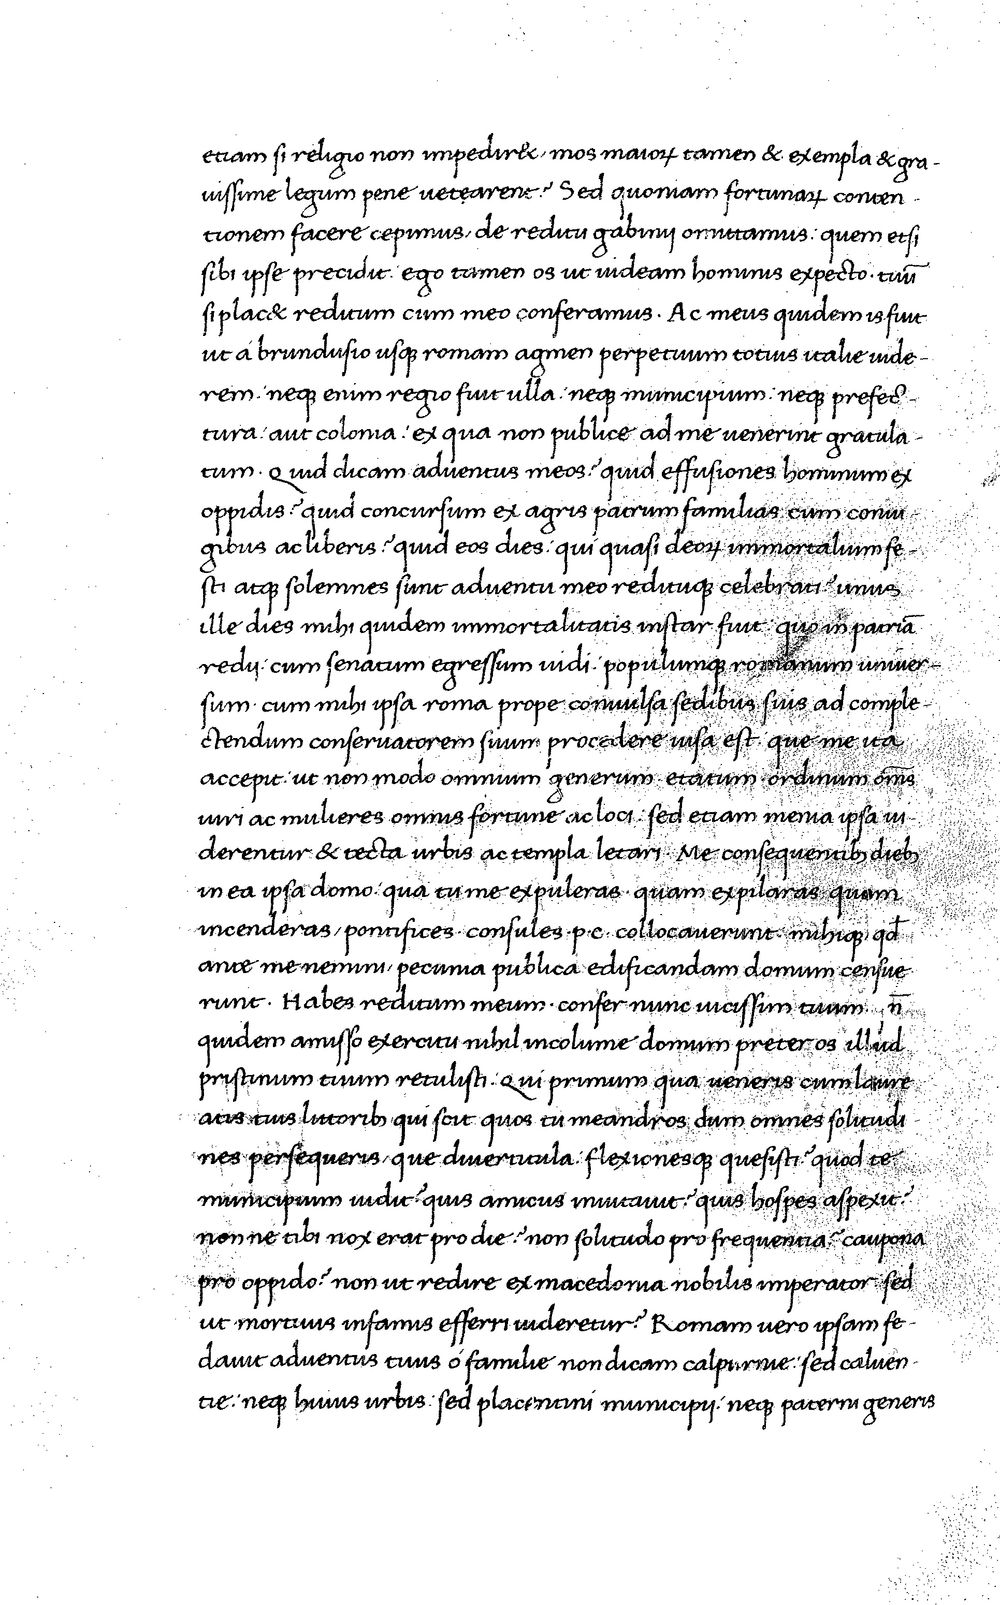 etiam si religio non impedir&, mos maioꝝ tamen & exempla & gra-
uissime legum pene uetęarent? Sed quoniam fortunaꝝ conten-
tionem facere cepimus, de reditu gabinij omittamus: quem etsi
sibi ipse precidit: ego tamen os ut uideam hominis expecto. tuū
si plac& reditum cum meo conferamus. Ac meus quidem is fuit
ut a brundusio usqꝫ romam agmen perpetuum totius italie uide-
rem: neqꝫ enim regio fuit ulla: neqꝫ municipium: neqꝫ prefec-
tura: aut colonia: ex qua non publice ad me uenerint gratula-
tum. Quid dicam aduentus meos? quid effusiones hominum ex
oppidis? quid concursum ex agris patrum familias cum coniu-
gibus ac liberis? quid eos dies: qui quasi deoꝝ immortalium fe-
sti atqꝫ solemnes sunt aduentu meo redituqꝫ celebrati? unus
ille dies mihi quidem immortalitatis instar fuit: quo in patriā
redij: cum senatum egressum uidi: populumqꝫ romanum uniuer-
sum: cum mihi ipsa roma prope conuulsa sedibus suis ad comple-
ctendum conseruatorem suum procedere uisa est: que me ita
accepit: ut non modo omnium generum etatum ordinum om̄s
uiri ac mulieres omnis fortune ac loci: sed etiam menia ipsa ui-
derentur & tecta urbis ac templa letari. Me consequentibꝫ diebꝫ
in ea ipsa domo: qua tu me expuleras: quam expilaras: quam
incenderas, pontifices: consules: p.c. collocauerunt: mihiqꝫ, qđ
ante me nemini, pecunia publica edificandam domum censue
runt. Habes reditum meum. confer nunc uicissim tuum n̄
quidem amisso exercitu nihil incolume domum preter os illud
pristinum tuum retulisti. Qui primum qua ueneris cum laure
atis tuis littoribꝫ qui scit quos tu meandros dum omnes solitudi
nes persequeris, que diuerticula: flexionesqꝫ quesisti? quod te
municipium uidit? quis amicus inuitauit? quis hospes aspexit?
nonne tibi nox erat pro die? non solitudo pro frequentia? caupona
pro oppido? non ut redire ex macedonia nobilis imperator sed
ut mortuus infamis efferri uideretur? Romam uero ipsam fe-
dauit aduentus tuus o familie non dicam calpurnie: sed caluen-
tie: neqꝫ huius urbis: sed placentini municipij: neqꝫ paterni generis